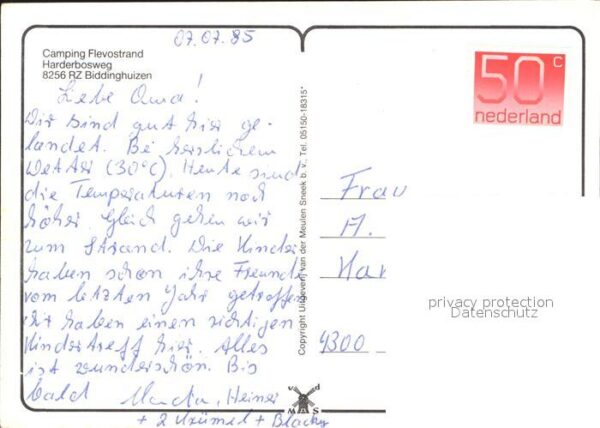 07.07.85
Camping Flevostrand
Harderbosweg
8256 RZ Biddinghuizen
Liebe Oma!
Wir sind gut hier ge-
landet. Bei herrlichem
Wetter (30°C). Heute sind
die Temperaturen noch
höher. Gleich gehen wir
zum Strand. Die Kinder
haben schon ihre Freunde
vom letzten Jahr getroffen
Wir haben einen richtigen
Kindertreff hier. Alles
ist wunderschön. Bis
bald Heiner
+ 2 Krümel + Blacky
Copyright Uitgeverij van der Meulen Sneek b.v. Tel. 05150-18315*
50 c
nederland
Frau
A.
Han
4300
privacy protection
Datenschutz
v d
MVS